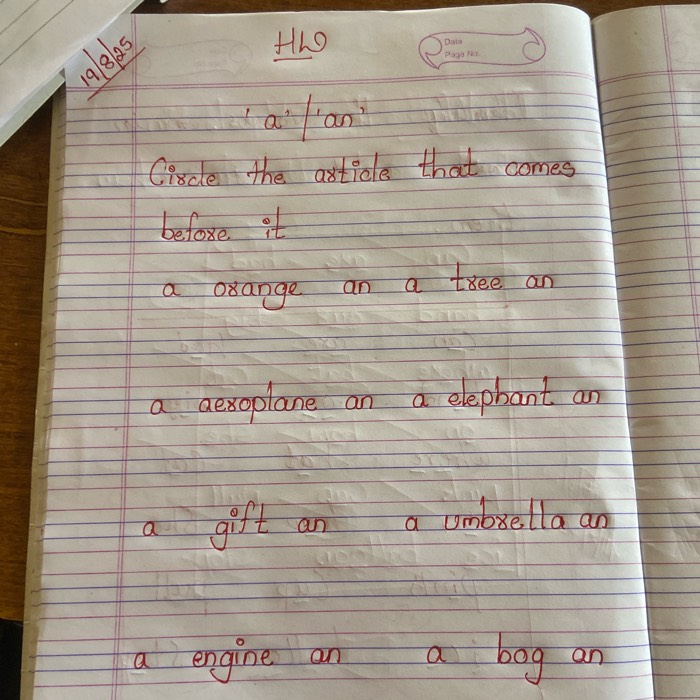 19/8/25
HW
Date
Page No.
'a' / 'an'
Circle the article that comes
before it
a orange an a tree an
a aeroplane an a elephant an
a gift an a umbrella an
a engine an a bog an